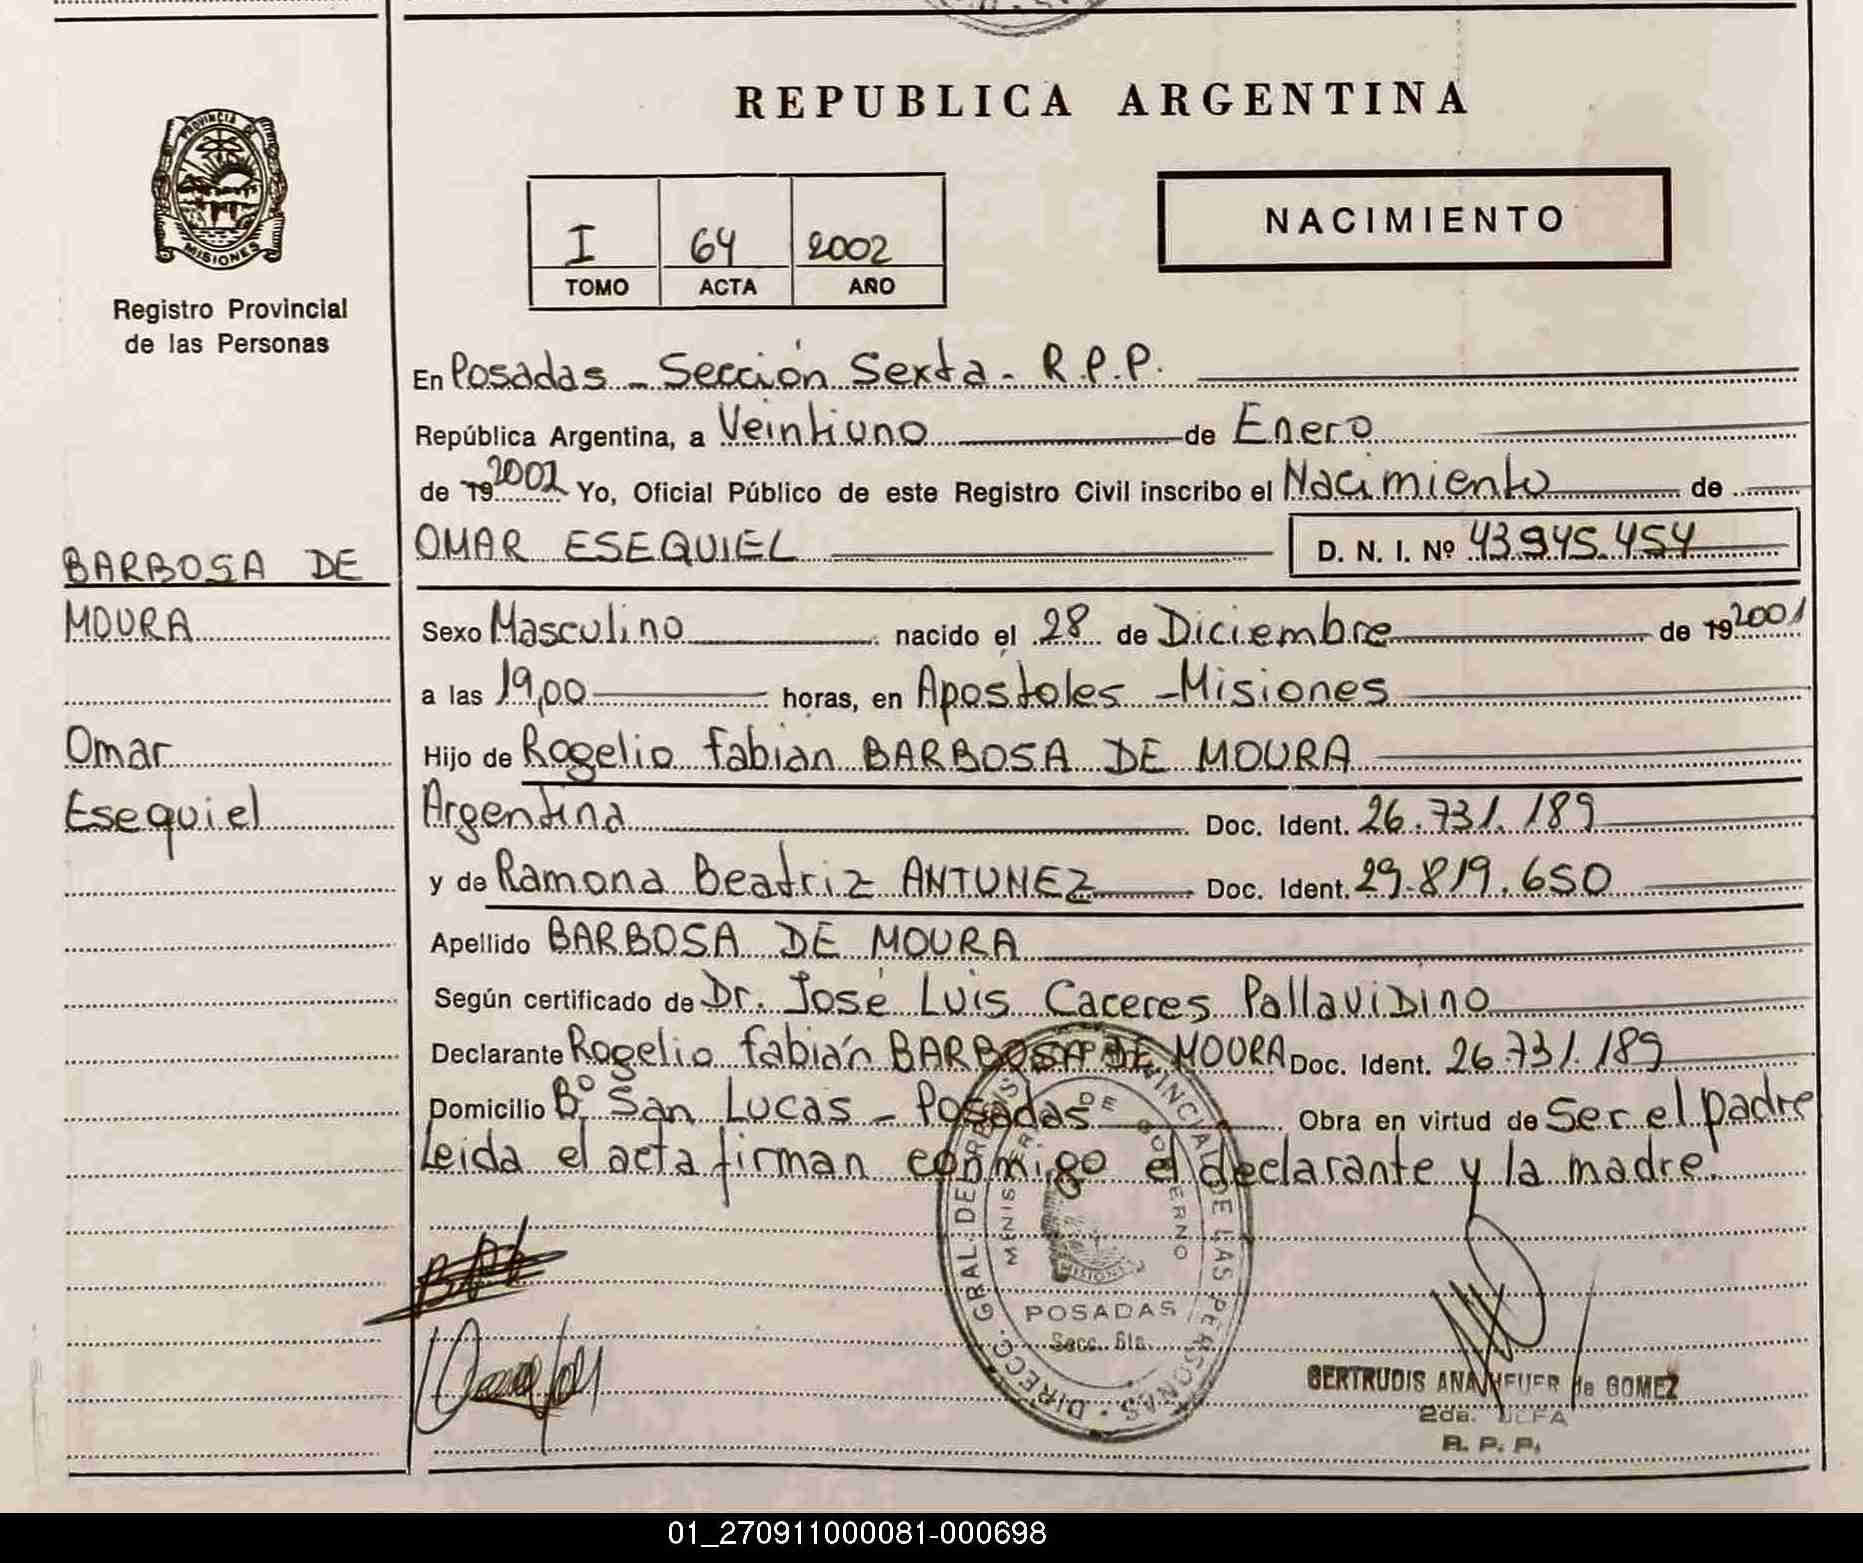 REPUBLICA ARGENTINA
PROVINCIA DE
MISIONES
Registro Provincial
de las Personas
I 64 2002
TOMO ACTA AÑO
NACIMIENTO
En Posadas - Sección Sexta - R.P.P.
República Argentina, a Veintiuno de Enero
de 19 2002 Yo, Oficial Público de este Registro Civil inscribo el Nacimiento de
OMAR ESEQUIEL D. N. I. Nº 43.945.454
BARBOSA DE
MOURA
Omar
Esequiel
Sexo Masculino nacido el 28 de Diciembre de 19 2001
a las 19,00 horas, en Apóstoles - Misiones
Hijo de Rogelio Fabian BARBOSA DE MOURA
Argentina Doc. Ident. 26.731.189
y de Ramona Beatriz ANTUNEZ Doc. Ident. 29.819.650
Apellido BARBOSA DE MOURA
Según certificado de Dr. José Luis Caceres Pallavidino
Declarante Rogelio Fabián BARBOSA DE MOURA Doc. Ident. 26.731.189
Domicilio Bº San Lucas - Posadas Obra en virtud de Ser el padre
Leida el acta firman conmigo el declarante y la madre.
DIRECC. GRAL. DEL REGIS PROVINCIAL DE LAS PERSONAS
MINISTERIO DE GOBIERNO
MISIONES
POSADAS
Secc. 6ta.
GERTRUDIS ANA HEUER de GOMEZ
2da. JEFA
R. P. P.
01_270911000081-000698